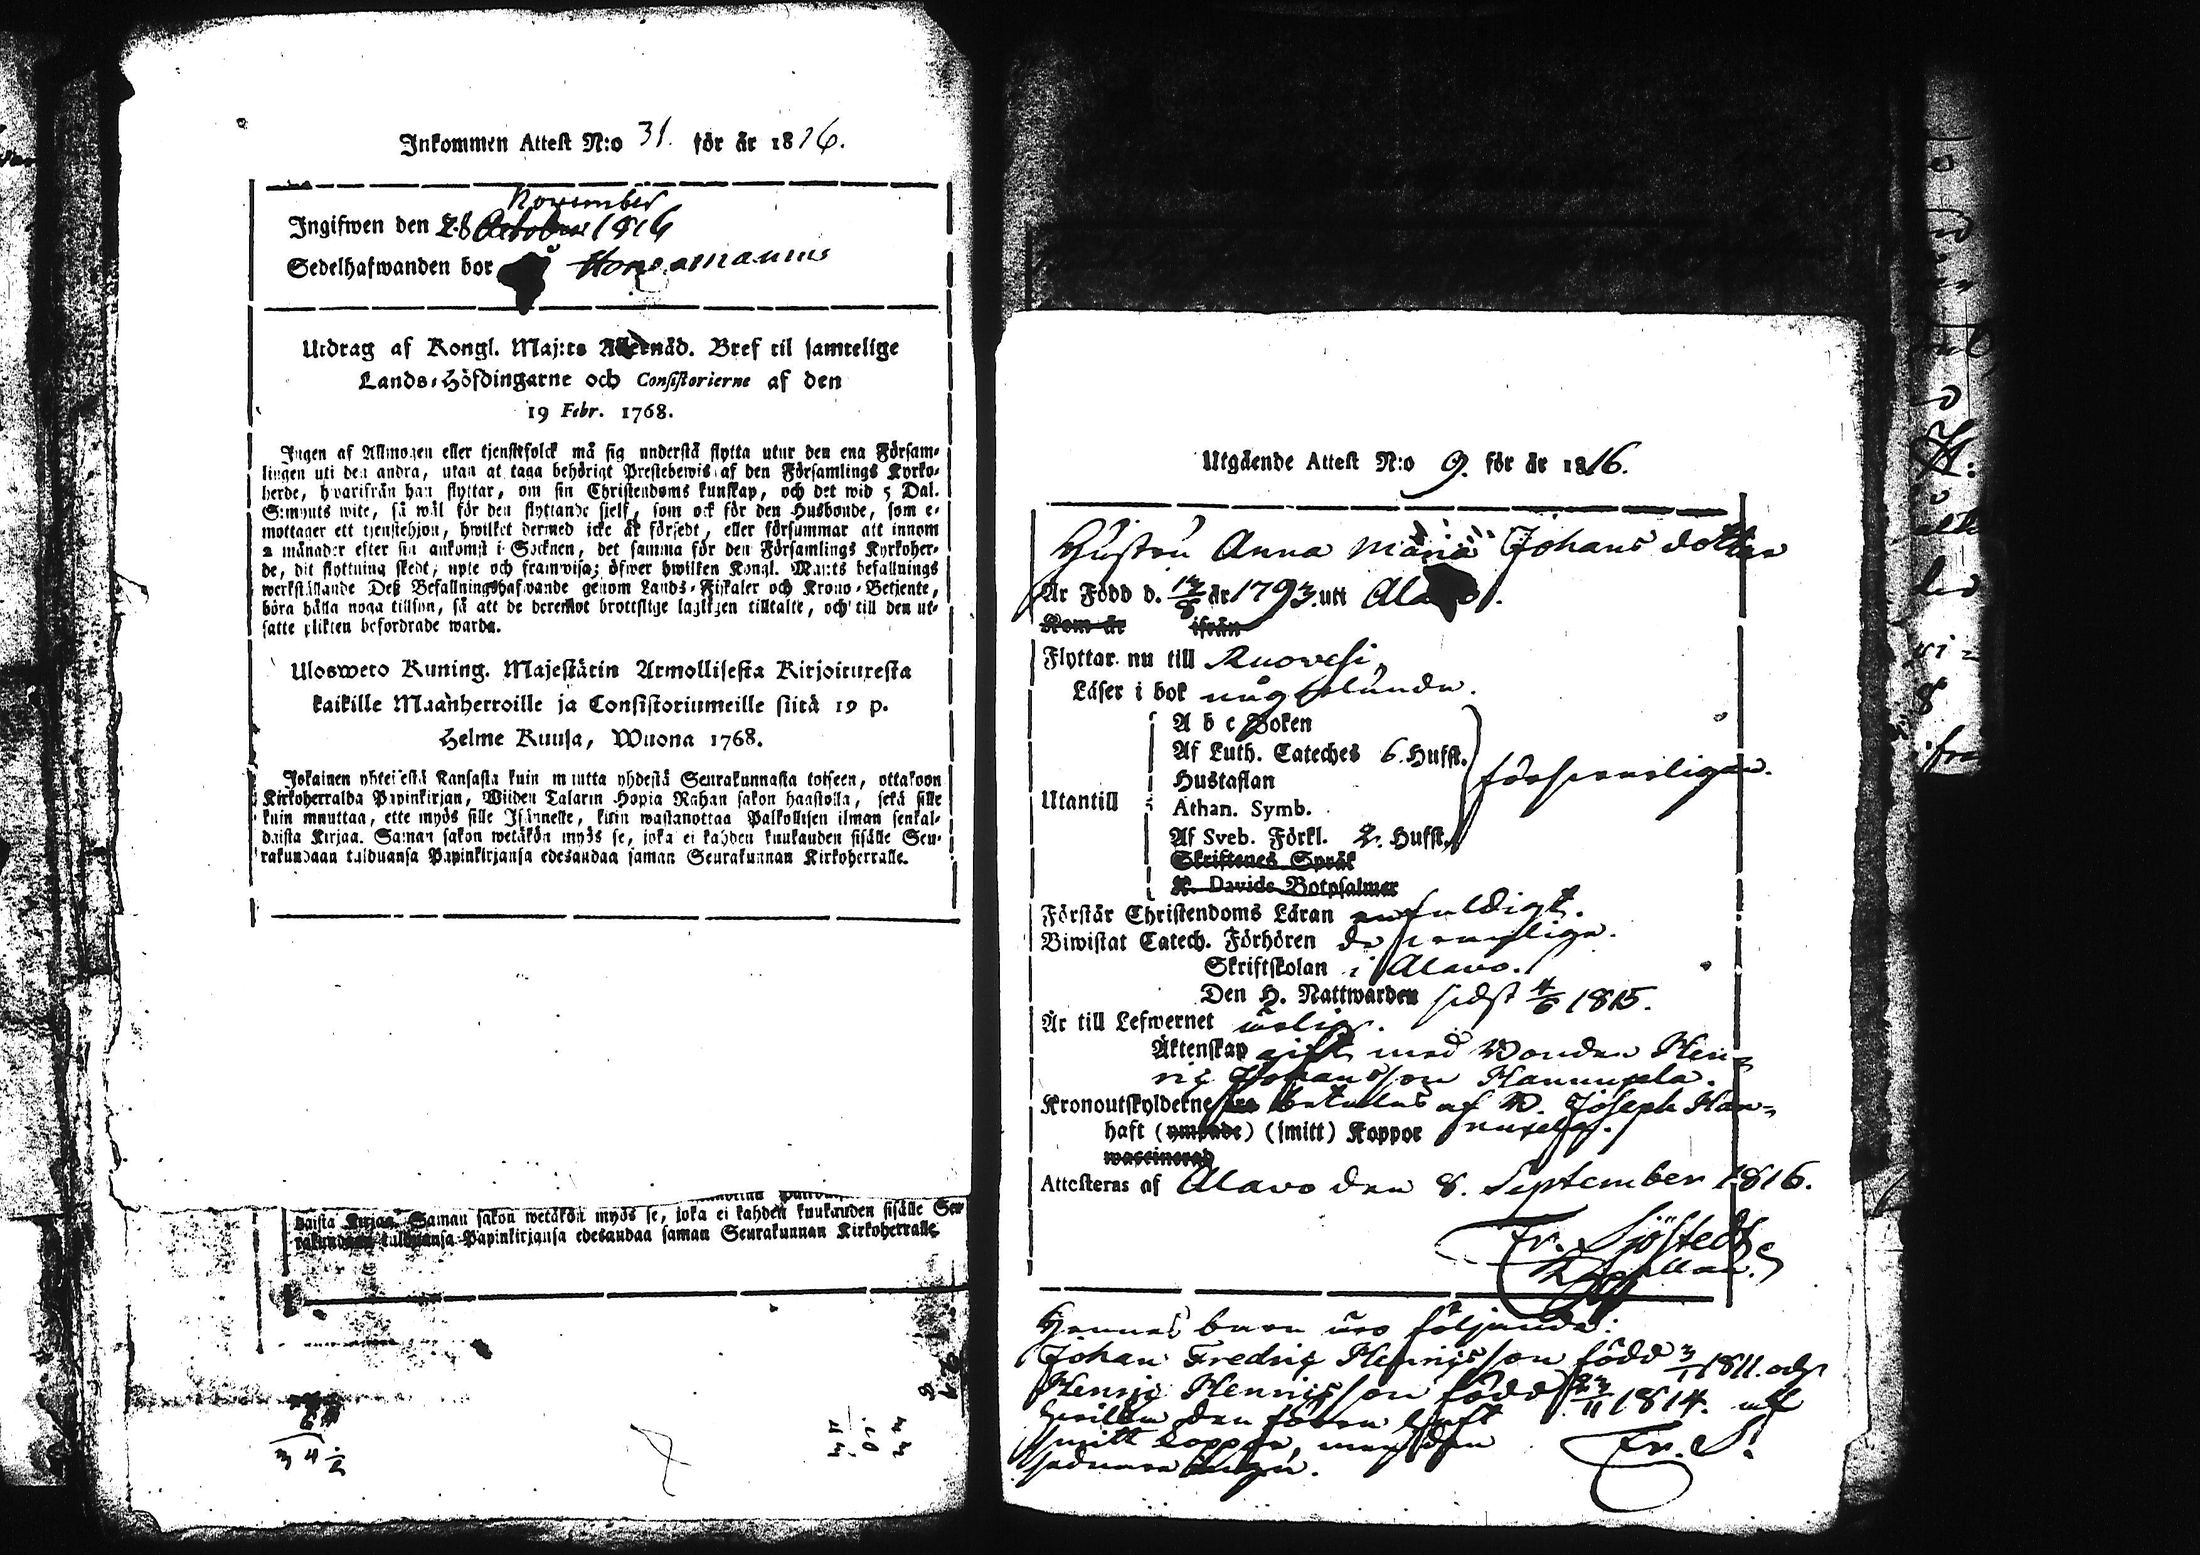 Inkommen Attest N:o 31. för år 1816.
November
Ingifwen den 28 October 1816
Sedelhafwanden bor å
Utdrag af Kongl. Maj:ts Allernåd. Bref til samtelige
Lands-Höfdingarne och Consistorierne af den
19 Febr. 1768.
Ingen af Allmogen eller tjenstefolck må sig understå flytta utur den ena Försam-
lingen uti den andra, utan at taga behörigt Prestebewis af den Församlings Kyrko-
herde, hwarifrån han flyttar, om sin Christendoms kunskap, och det wid 5 Dal.
S:mynts wite, så wäl för den flyttande sielf, som ock för den Husbonde, som e-
mottager ett tjenstehjon, hwilket dermed icke är försedt, eller försummar att innom
2 månader efter sin ankomst i Socknen, det samma för den Församlings Kyrkoher-
de, dit flyttning skedt, upte och framwisa; öfwer hwilken Kongl. Maj:ts befallnings
werkställande Deß Befallningshafwande genom Lands-Fiskaler och Krono-Betjente,
böra hålla noga tillsyn, så att de deremot brottslige lagligen tilltalte, och till den ut-
satte plikten befordrade warda.
Uloswето Kuning. Majestätin Armollisesta Kirjoituxesta
kaikille Maanherroille ja Consistoriumeille siitä 19 p.
Helme Kuusa, Wuona 1768.
Jokainen yhteisestä Kansasta kuin muutta yhdestä Seurakunnasta toiseen, ottakoon
Kirkoherralda Papinkirjan, Wiiden Talarin Hopia Rahan sakon haastolla, sekä sille
kuin muuttaa, ette myös sille Isännelle, kuin wastanottaa Palkollisen ilman senkal-
daista Kirjaa. Saman sakon wetäkön myös se, joka ei kahden kuukauden sisälle Seu-
rakundaan tulduansa Papinkirjansa edesandaa saman Seurakunnan Kirkoherralle.
daista Kirjaa. Saman sakon wetäkön myös se, joka ei kahden kuukauden sisälle Seu-
rakundaan tulduansa Papinkirjansa edesandaa saman Seurakunnan Kirkoherralle.
Utgående Attest N:o 9. för år 1816.
Hustru Anna Maria Johans dotter
Är Född d. 12/8 år 1793. uti Alavo.
Kom år ifrån
Flyttar nu till Ruovesi,
Läser i bok någorlunda.
A b c Boken
Af Luth. Cateches 6. Hufst.
Hustaflan
Utantill
Athan. Symb.
försvarligen.
Af Sveb. Förkl. 2. Hufst.
Skriftenes Språk
K. Davids Botpsalmer
Förstår Christendoms Läran enfuldigt.
Biwistat Catech. Förhören
Skriftskolan i Alavo.
Den H. Nattwarden sidst 4/6 1815.
Är till Lefwernet ärlig.
Äktenskap gift med Bonden Hen-
ric Johansson Hannuxela.
Kronoutskylderne betalas af B. Joseph Han-
nuxela.
haft (ympade) (smitt) Koppor
waccinerad
Attesteras af Alavo den 8. September 1816.
Fr. Sjöstedt
Capellan.
Hennes barn äro följande:
Johan Fredric Henricsson född 3/1 1811. och
Henric Henricsson född 23/11 1814. af
hvilka den förra haft
smitt koppor, men den
sednare
Fr. S.